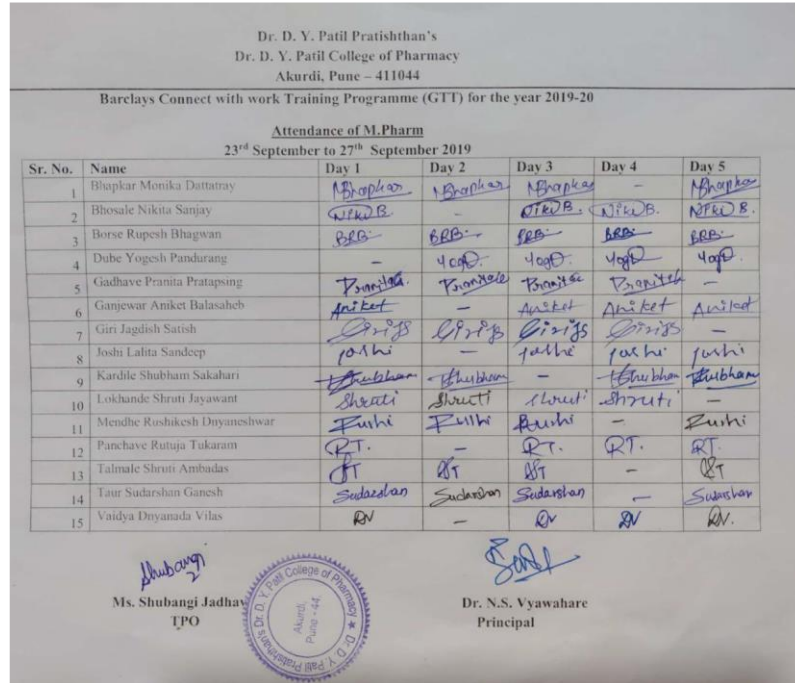 Dr. D. Y. Patil Pratishthan's
Dr. D. Y. Patil College of Pharmacy
Akurdi, Pune – 411044
Barclays Connect with work Training Programme (GTT) for the year 2019-20
Attendance of M.Pharm
23rd September to 27th September 2019
Sr. No. Name Day 1 Day 2 Day 3 Day 4 Day 5
1 Bhapkar Monika Dattatray MBhapkar MBhapkar MBhapkar – MBhapkar
2 Bhosale Nikita Sanjay NikiB. – NikiB. NikiB. NikiB.
3 Borse Rupesh Bhagwan BRB BRB BRB BRB BRB
4 Dube Yogesh Pandurang – YogD. YogD. YogD YogD.
5 Gadhave Pranita Pratapsing Pranita Pranita Pranita Pranita –
6 Ganjewar Aniket Balasaheb Aniket – Aniket Aniket Aniket
7 Giri Jagdish Satish GiriJS GiriJS GiriJS GiriJS –
8 Joshi Lalita Sandeep joshi – joshi joshi joshi
9 Kardile Shubham Sakahari Shubham Shubham – Shubham Shubham
10 Lokhande Shruti Jayawant Shruti Shruti Shruti Shruti –
11 Mendhe Rushikesh Dnyaneshwar Rushi Rushi Rushi – Rushi
12 Panchave Rutuja Tukaram RT. – RT. RT. RT.
13 Talmale Shruti Ambadas ST ST ST – ST
14 Taur Sudarshan Ganesh Sudarshan Sudarshan Sudarshan – Sudarshan
15 Vaidya Dnyanada Vilas DV – DV DV DV.
Shubangi
Ms. Shubangi Jadhav
TPO
Dr. N.S. Vyawahare
Principal
Dr. D. Y. Patil Pratishthan's Dr. D. Y. Patil College of Pharmacy
Akurdi,
Pune - 44.